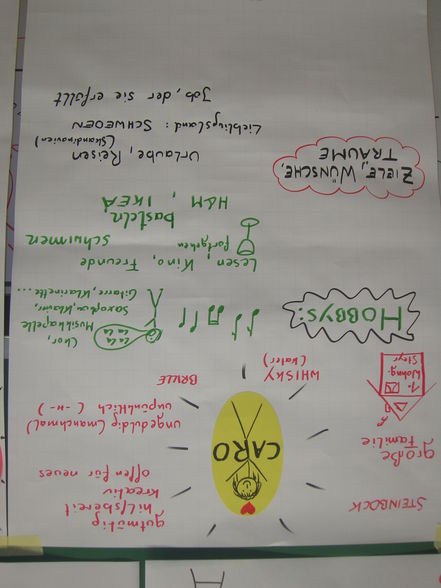 STEINBOCK
große
Familie
1.
Wohng.
Steyr
WHISKY
(Kater)
CARO
gutmütig
hilfsbereit
kreativ
offen für neues
ungeduldig (manchmal)
unpünktlich (-"-)
BRILLE
HOBBYS:
Chor,
Musikkapelle
Saxophon, Klavier,
Gitarre, Klarinette...
LA LA
LA LA
Lesen, Kino, Freunde
fortgehen
schwimmen
basteln
H&M, IKEA
ZIELE, WÜNSCHE,
TRÄUME
Urlaube, Reisen
(Skandinavien)
Lieblingsland: SCHWEDEN
Job, der sie erfüllt